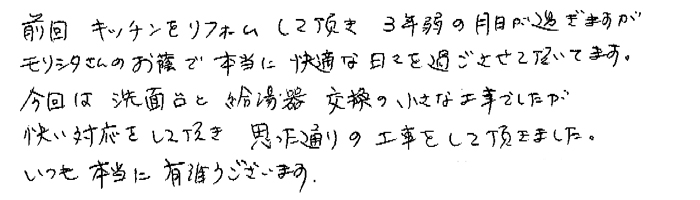 前回 キッチンをリフォームして頂き 3年弱の月日が過ぎますが
モリシタさんのお蔭で本当に快適な日々を過ごさせて頂いてます。
今回は 洗面台と給湯器交換の小さな工事でしたが
快い対応をして頂き 思った通りの工事をして頂きました。
いつも本当に有難うございます.